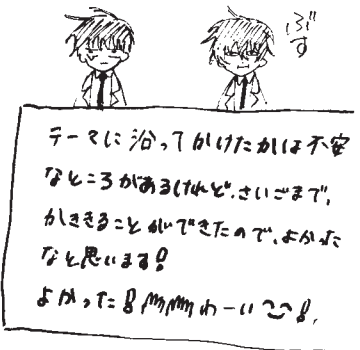 ぶす
テーマに沿ってかけたかは不安
なところがあるけれど、さいごまで、
かききることができたので、よかった
なと思いまる!
よかった! わーい!